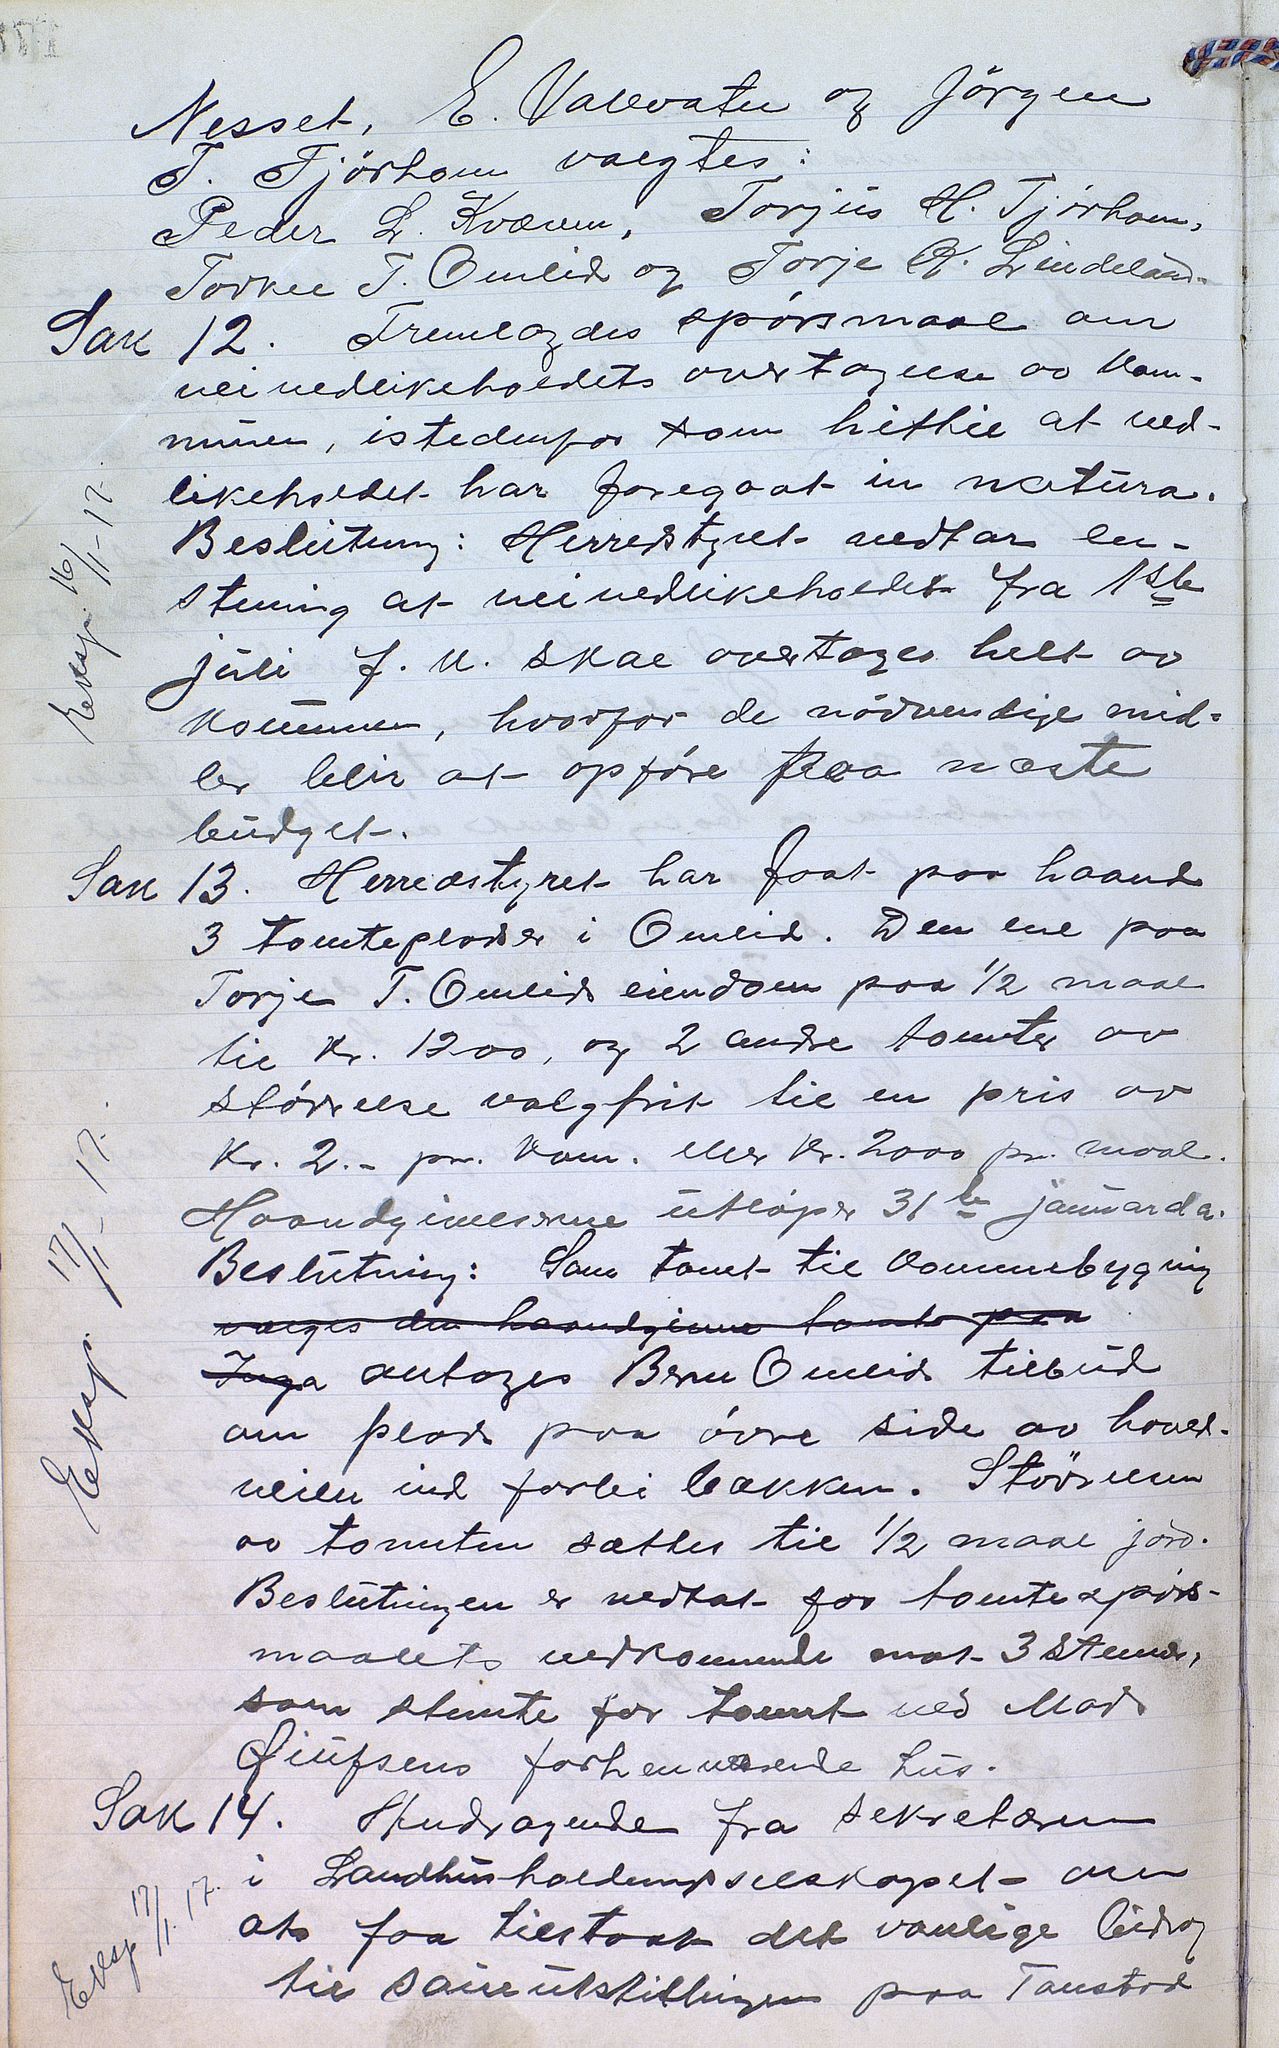 Nesset, E. Valevatn og Jörgen
T. Tjörhom valgtes:
Peder L. Kvæven, Torjus H. Tjörhom,
Torkel T. Omlid og Torje K. Lindeland.
Sak 12. Fremlagdes spörsmaal om
veivedlikeholdets overtagelse av kom-
munen, istedenfor som hittil at ved-
likeholdet har foregaat in natura.
Beslutning: Herredstyret vedtar en-
stemig at veivedlikeholdet fra 1ste
juli f. k. skal overtages helt av
kommunen, hvorfor de nödvendige mid-
ler blir at opföre paa næste
budget.
Eksp. 16/1-17.
Sak 13. Herredstyret har faat paa haand
3 tomtepladser i Omlid. Den ene paa
Torje T. Omlids eiendom paa 1/2 maal
til kr. 1200, og 2 andre tomter av
störrelse valgfrit til en pris av
kr. 2.- pr. kvm. eller kr. 2000 pr. maal.
Haandgivelserne utlöper 31te januar d.a.
Beslutning: Som tomt til kommunebygning
vælges den haandgivne tomt paa
Inga antages Bern Omlids tilbud
om plads paa övre side av hoved-
veien ind forbi bækken. Störrelsen
av tomten sættes til 1/2 maal jord.
Beslutningen er vedtat for tomtespörs-
maalets vedkommende mot 3 stemer,
som stemte for tomt ved Mads
Siufsens forhenværende hus.
Eksp 17/1-17.
Sak 14. Andragende fra sekretæren
i Landhusholdningsselskapet om
at faa tilstaat det vanlige bidrag
til saueutstillingen paa Tonstad
Eksp 17/1.17.